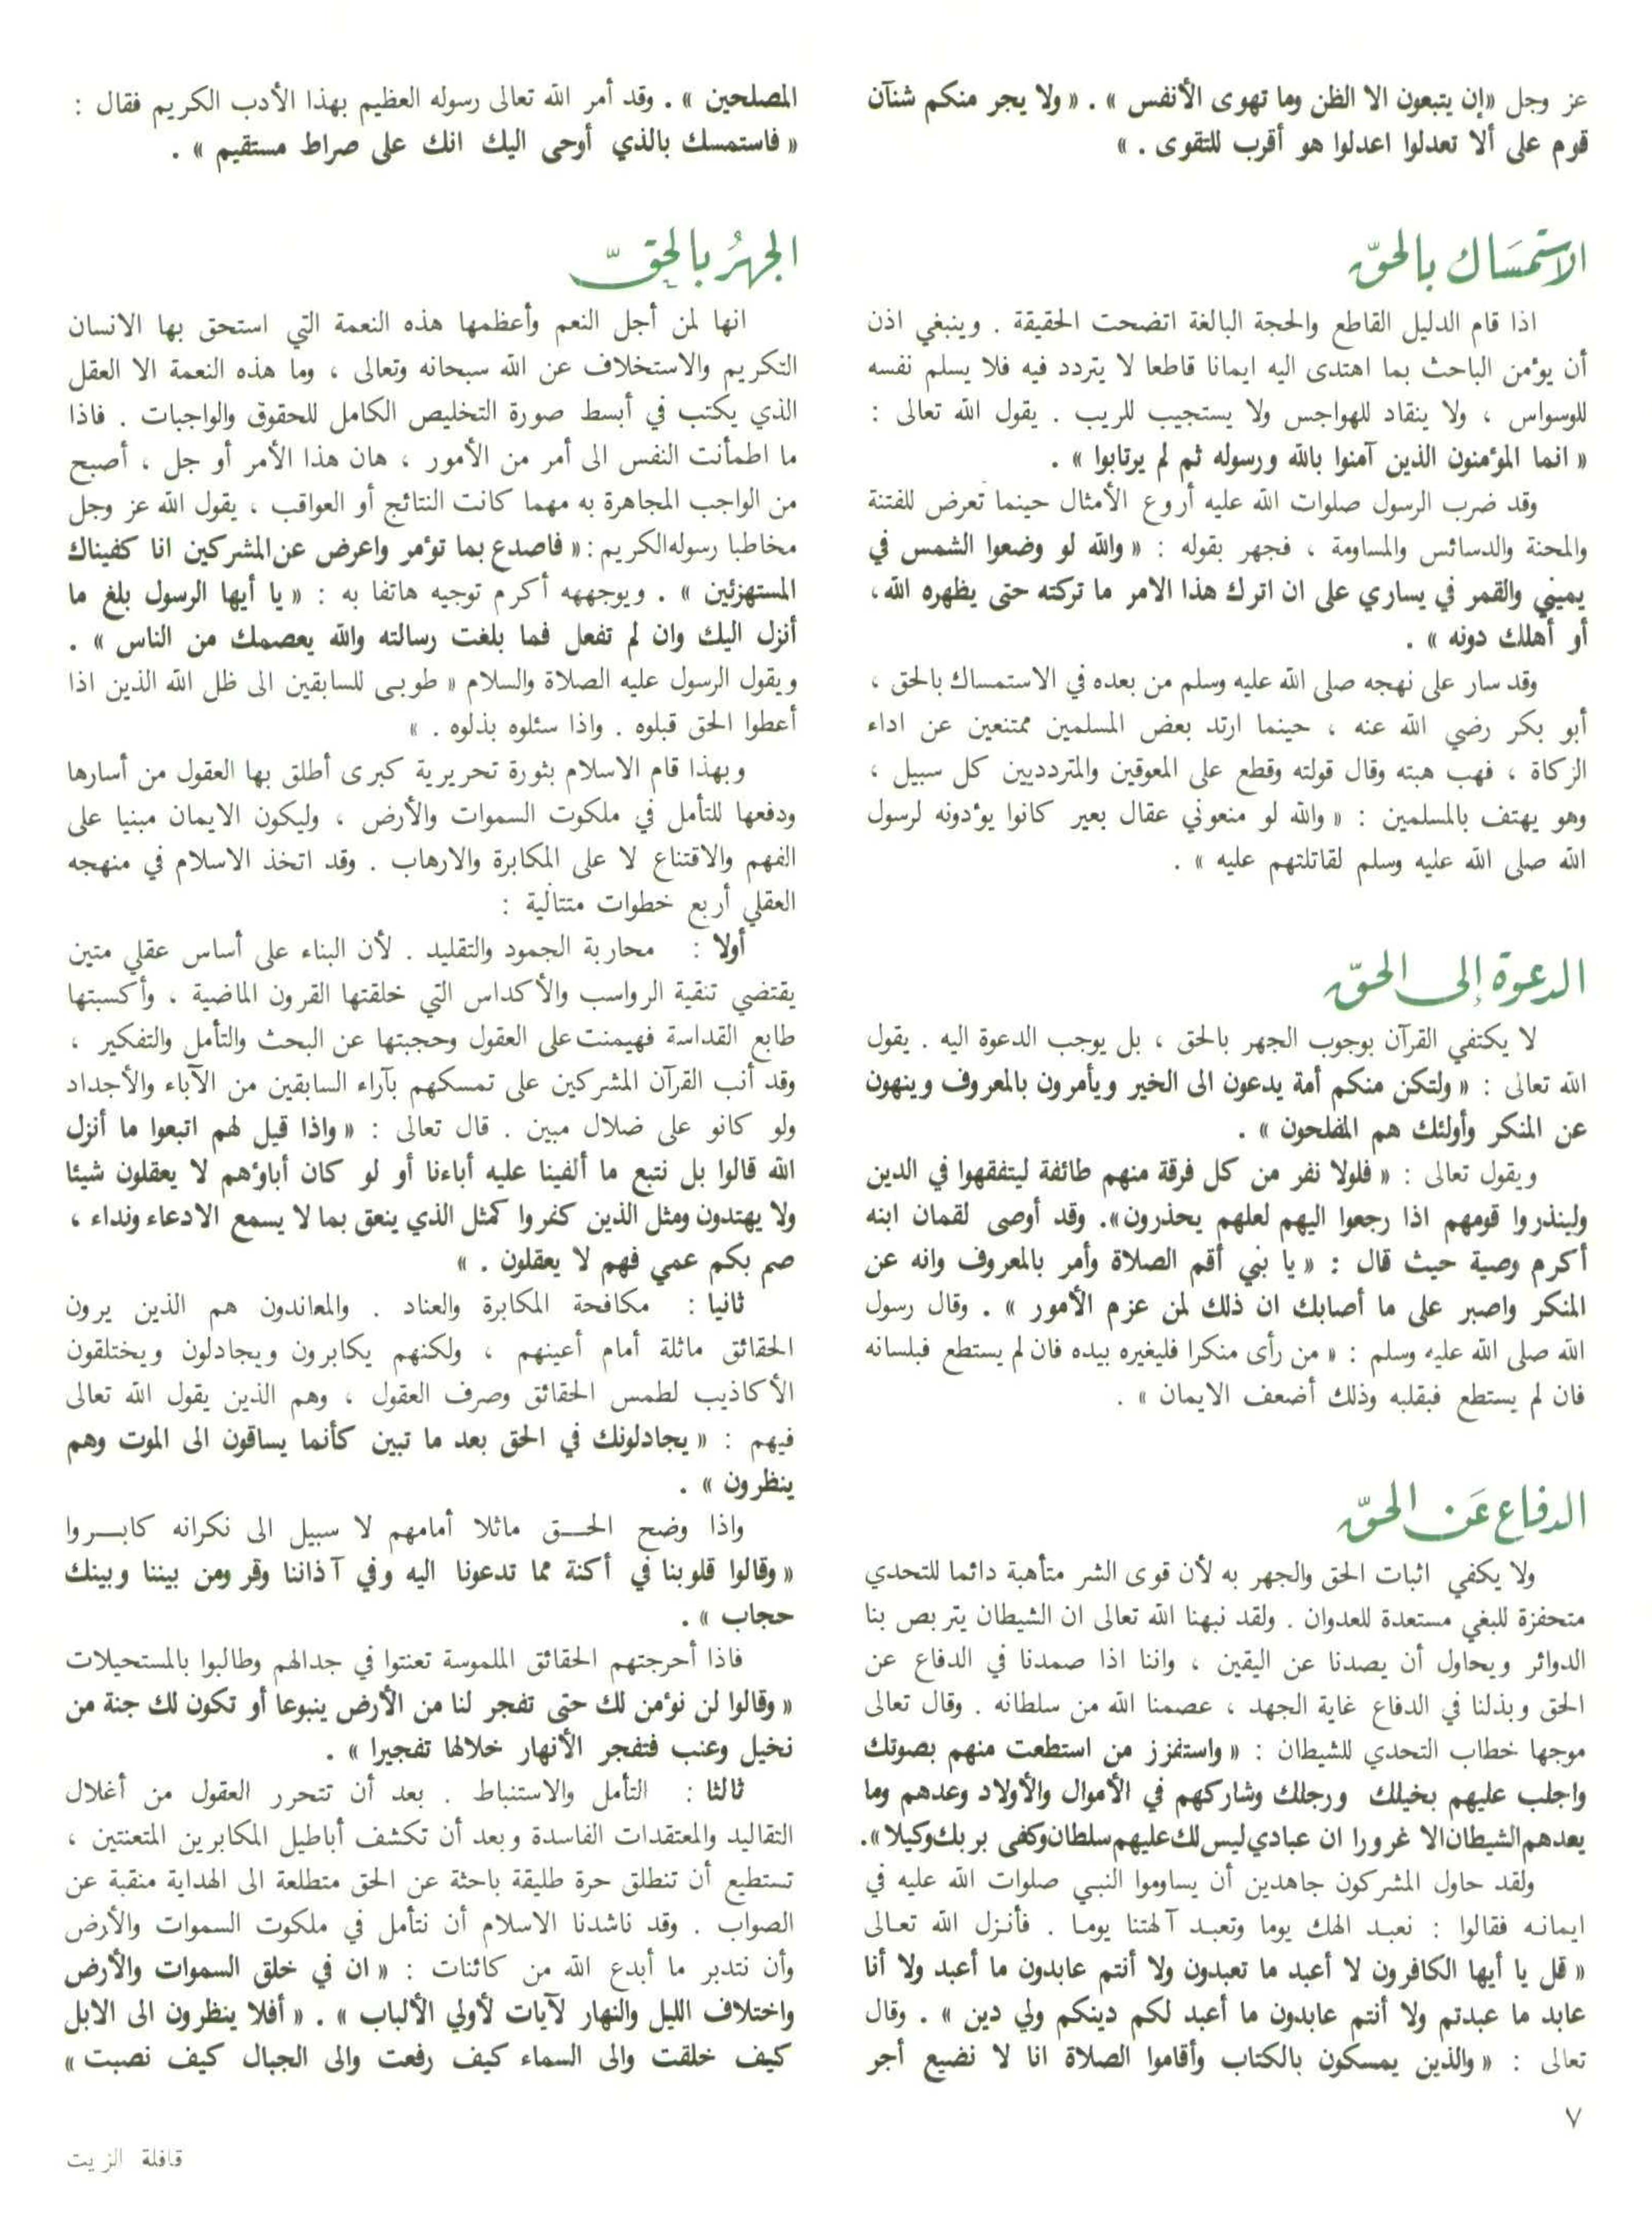 عز وجل «إن يتبعون الا الظن وما تهوى الأنفس» . «ولا يجر منكم شنآن
قوم على ألا تعدلوا اعدلوا هو أقرب للتقوى . »
الاستمسَاك بالحقّ
اذا قام الدليل القاطع والحجة البالغة اتضحت الحقيقة . وينبغي اذن
أن يؤمن الباحث بما اهتدى اليه ايمانا قاطعا لا يتردد فيه فلا يسلم نفسه
للوسواس ، ولا ينقاد للهواجس ولا يستجيب للريب . يقول الله تعالى :
« انما المؤمنون الذين آمنوا بالله ورسوله ثم لم يرتابوا » .
وقد ضرب الرسول صلوات الله عليه أروع الأمثال حينما تعرض للفتنة
والمحنة والدسائس والمساومة ، فجهر بقوله : « والله لو وضعوا الشمس في
يميني والقمر في يساري على ان اترك هذا الامر ما تركته حتى يظهره الله ،
أو أهلك دونه » .
وقد سار على نهجه صلى الله عليه وسلم من بعده في الاستمساك بالحق ،
أبو بكر رضي الله عنه ، حينما ارتد بعض المسلمين ممتنعين عن اداء
الزكاة ، فهب هبته وقال قولته وقطع على المعوقين والمترددين كل سبيل ،
وهو يهتف بالمسلمين : « والله لو منعوني عقال بعير كانوا يؤدونه لرسول
الله صلى الله عليه وسلم لقاتلتهم عليه » .
الدعوة إلى الحقّ
لا يكتفي القرآن بوجوب الجهر بالحق ، بل يوجب الدعوة اليه . يقول
الله تعالى : « ولتكن منكم أمة يدعون الى الخير ويأمرون بالمعروف وينهون
عن المنكر وأولئك هم المفلحون » .
ويقول تعالى : « فلولا نفر من كل فرقة منهم طائفة ليتفقهوا في الدين
ولينذروا قومهم اذا رجعوا اليهم لعلهم يحذرون». وقد أوصى لقمان ابنه
أكرم وصية حيث قال : « يا بني أقم الصلاة وأمر بالمعروف وانه عن
المنكر واصبر على ما أصابك ان ذلك لمن عزم الأمور » . وقال رسول
الله صلى الله عليه وسلم : « من رأى منكرا فليغيره بيده فان لم يستطع فبلسانه
فان لم يستطع فبقلبه وذلك أضعف الايمان » .
الدفاع عَن الحقّ
ولا يكفي اثبات الحق والجهر به لأن قوى الشر متأهبة دائما للتحدي
متحفزة للبغي مستعدة للعدوان . ولقد نبهنا الله تعالى ان الشيطان يتربص بنا
الدوائر ويحاول أن يصدنا عن اليقين ، واننا اذا صمدنا في الدفاع عن
الحق وبذلنا في الدفاع غاية الجهد ، عصمنا الله من سلطانه . وقال تعالى
موجها خطاب التحدي للشيطان : « واستفزز من استطعت منهم بصوتك
واجلب عليهم بخيلك ورجلك وشاركهم في الأموال والأولاد وعدهم وما
يعدهم الشيطان الا غرورا ان عبادي ليس لك عليهم سلطان وكفى بربك وكيلا».
ولقد حاول المشركون جاهدين أن يساوموا النبي صلوات الله عليه في
ايمانه فقالوا : نعبد الهك يوما وتعبد آلهتنا يوما . فأنزل الله تعالى
« قل يا أيها الكافرون لا أعبد ما تعبدون ولا أنتم عابدون ما أعبد ولا أنا
عابد ما عبدتم ولا أنتم عابدون ما أعبد لكم دينكم ولي دين » . وقال
تعالى : « والذين يمسكون بالكتاب وأقاموا الصلاة انا لا نضيع أجر
المصلحين » . وقد أمر الله تعالى رسوله العظيم بهذا الأدب الكريم فقال :
« فاستمسك بالذي أوحى اليك انك على صراط مستقيم » .
الجهرُ بالحقّ
انها لمن أجل النعم وأعظمها هذه النعمة التي استحق بها الانسان
التكريم والاستخلاف عن الله سبحانه وتعالى ، وما هذه النعمة الا العقل
الذي يكتب في أبسط صورة التخليص الكامل للحقوق والواجبات . فاذا
ما اطمأنت النفس الى أمر من الأمور ، هان هذا الأمر أو جل ، أصبح
من الواجب المجاهرة به مهما كانت النتائج أو العواقب ، يقول الله عز وجل
مخاطبا رسوله الكريم : « فاصدع بما تؤمر واعرض عن المشركين انا كفيناك
المستهزئين » . ويوجهه أكرم توجيه هاتفا به : « يا أيها الرسول بلغ ما
أنزل اليك وان لم تفعل فما بلغت رسالته والله يعصمك من الناس » .
ويقول الرسول عليه الصلاة والسلام « طوبى للسابقين الى ظل الله الذين اذا
أعطوا الحق قبلوه . واذا سئلوه بذلوه . »
وبهذا قام الاسلام بثورة تحريرية كبرى أطلق بها العقول من أسارها
ودفعها للتأمل في ملكوت السموات والأرض ، وليكون الايمان مبنيا على
الفهم والاقتناع لا على المكابرة والارهاب . وقد اتخذ الاسلام في منهجه
العقلي أربع خطوات متتالية :
أولا : محاربة الجمود والتقليد . لأن البناء على أساس عقلي متين
يقتضي تنقية الرواسب والأكداس التي خلقتها القرون الماضية ، وأكسبتها
طابع القداسة فهيمنت على العقول وحجبتها عن البحث والتأمل والتفكير ،
وقد أنب القرآن المشركين على تمسكهم بآراء السابقين من الآباء والأجداد
ولو كانو على ضلال مبين . قال تعالى : « واذا قيل لهم اتبعوا ما أنزل
الله قالوا بل نتبع ما ألفينا عليه أباءنا أو لو كان أباؤهم لا يعقلون شيئا
ولا يهتدون ومثل الذين كفروا كمثل الذي ينعق بما لا يسمع الادعاء ونداء ،
صم بكم عمي فهم لا يعقلون . »
ثانيا : مكافحة المكابرة والعناد . والمعاندون هم الذين يرون
الحقائق ماثلة أمام أعينهم ، ولكنهم يكابرون ويجادلون ويختلقون
الأكاذيب لطمس الحقائق وصرف العقول ، وهم الذين يقول الله تعالى
فيهم : « يجادلونك في الحق بعد ما تبين كأنما يساقون الى الموت وهم
ينظرون » .
واذا وضح الحق ماثلا أمامهم لا سبيل الى نكرانه كابروا
« وقالوا قلوبنا في أكنة مما تدعونا اليه وفي آذاننا وقر ومن بيننا وبينك
حجاب » .
فاذا أحرجتهم الحقائق الملموسة تعنتوا في جدالهم وطالبوا بالمستحيلات
« وقالوا لن نؤمن لك حتى تفجر لنا من الأرض ينبوعا أو تكون لك جنة من
نخيل وعنب فتفجر الأنهار خلالها تفجيرا » .
ثالثا : التأمل والاستنباط . بعد أن تتحرر العقول من أغلال
التقاليد والمعتقدات الفاسدة وبعد أن تكشف أباطيل المكابرين المتعنتين ،
تستطيع أن تنطلق حرة طليقة باحثة عن الحق متطلعة الى الهداية منقبة عن
الصواب . وقد ناشدنا الاسلام أن نتأمل في ملكوت السموات والأرض
وأن نتدبر ما أبدع الله من كائنات : « ان في خلق السموات والأرض
واختلاف الليل والنهار لآيات لأولي الألباب » . « أفلا ينظرون الى الابل
كيف خلقت والى السماء كيف رفعت والى الجبال كيف نصبت »
٧
قافلة الزيت